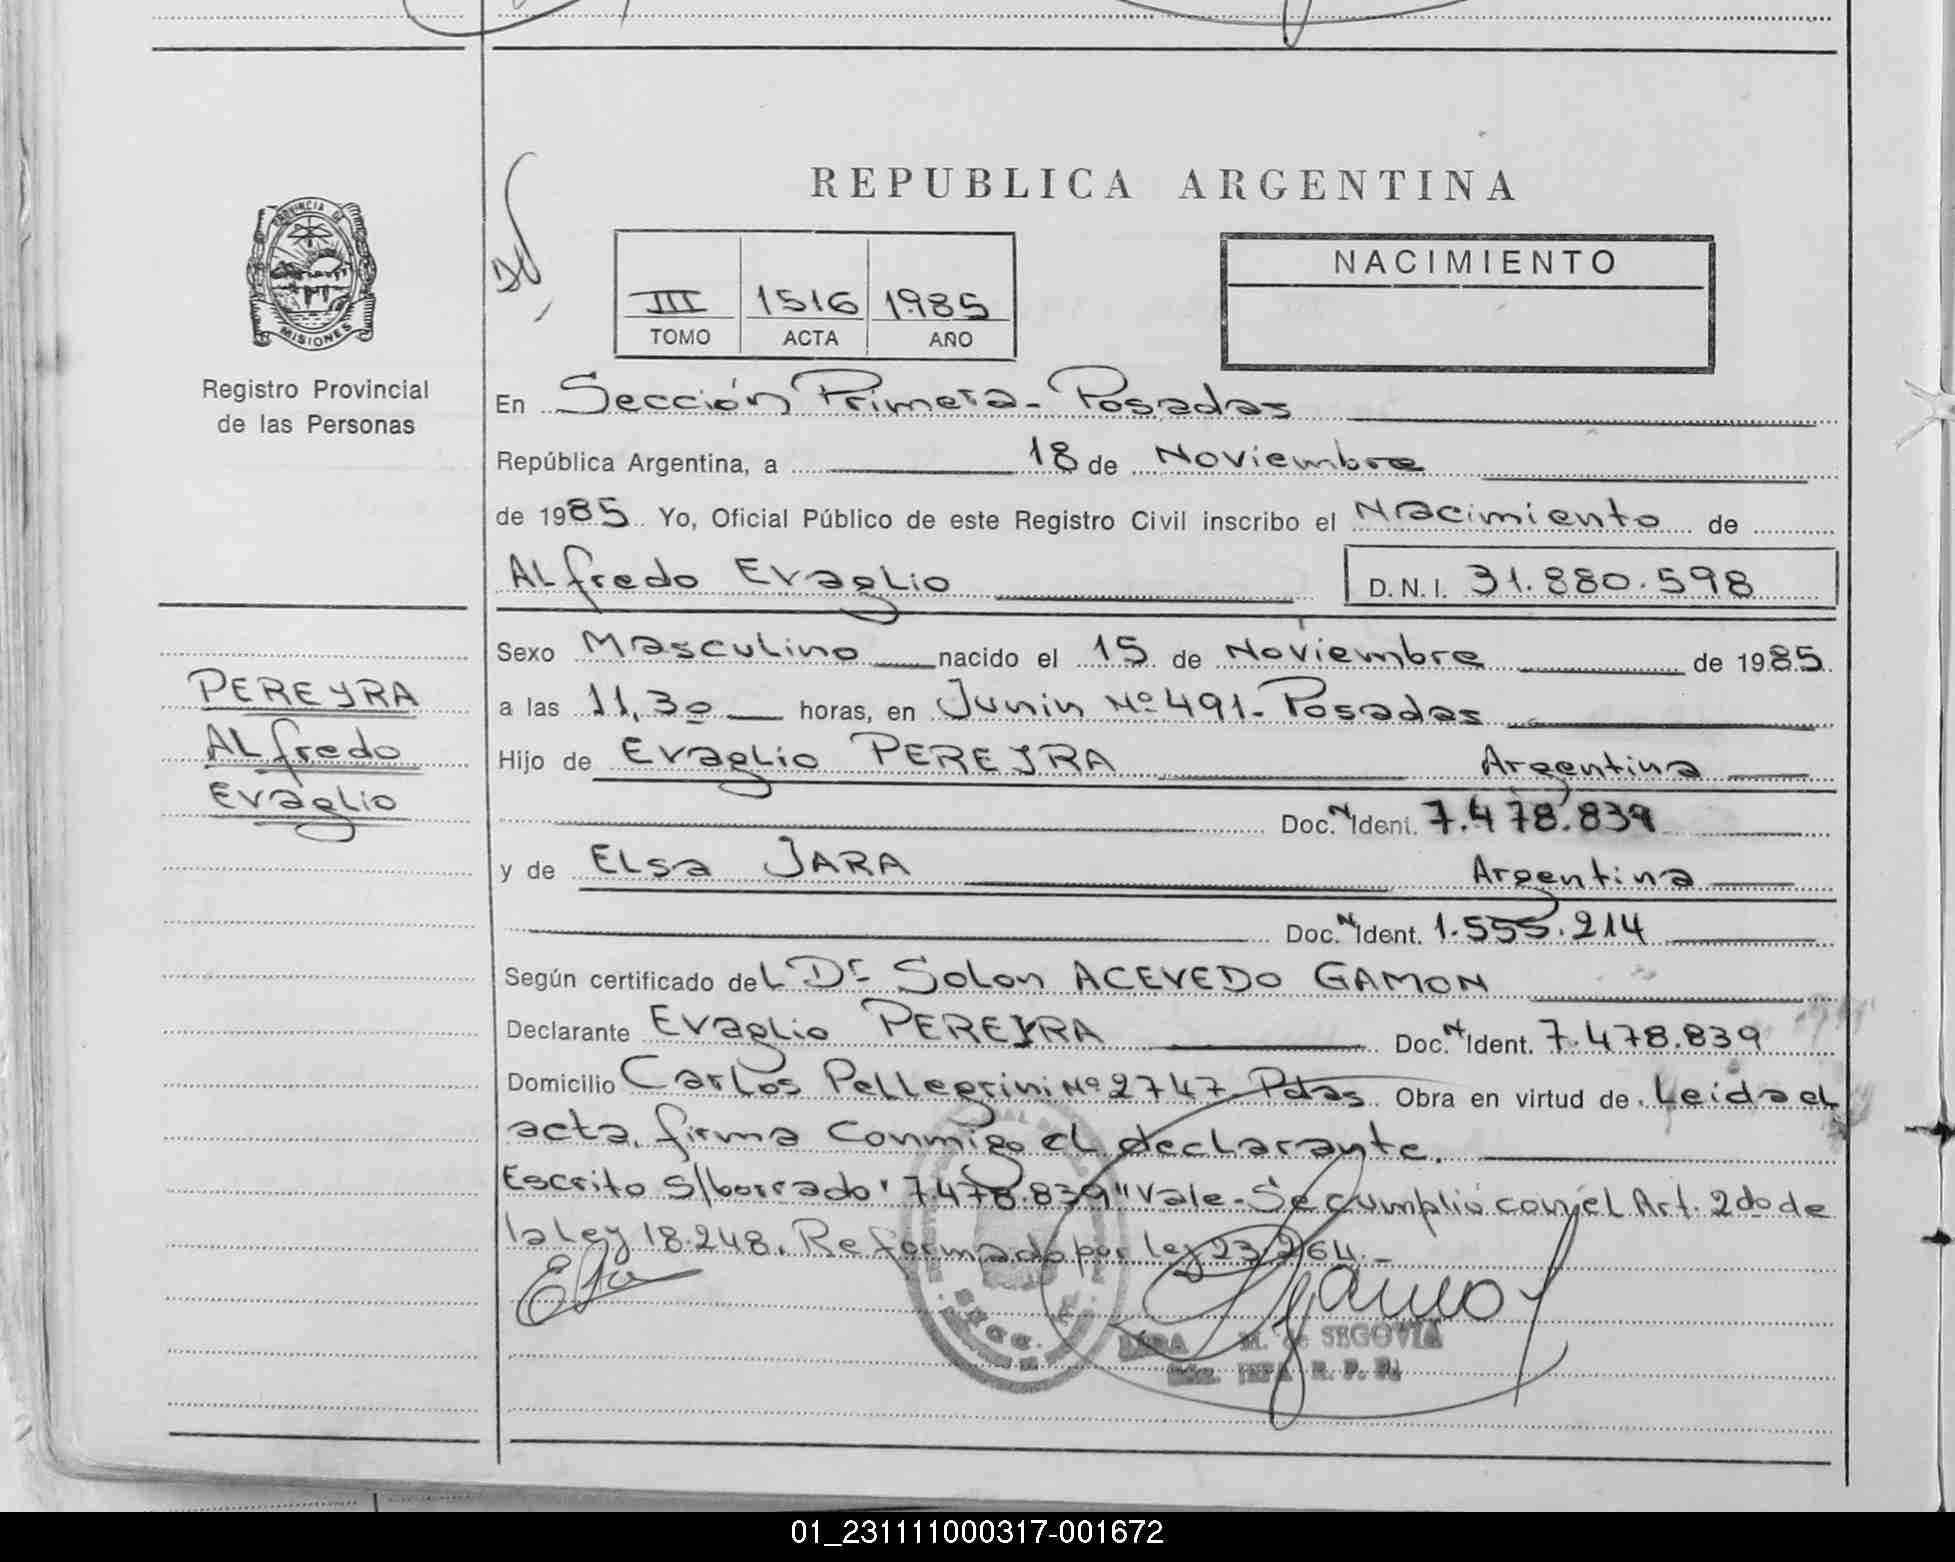 PROVINCIA DE
MISIONES
Registro Provincial
de las Personas
REPUBLICA ARGENTINA
III 1516 1985
TOMO ACTA AÑO
NACIMIENTO
En Sección Primera - Posadas
República Argentina, a 18 de Noviembre
de 1985 Yo, Oficial Público de este Registro Civil inscribo el Nacimiento de
ALfredo EvagLio D.N.I. 31.880.598
PEREYRA
ALfredo
EvagLio
Sexo MascuLino nacido el 15 de Noviembre de 1985
a las 11,30 horas, en Junin Nº 491 - Posadas
Hijo de EvagLio PEREYRA Argentina
Doc. N Ident. 7.478.839
y de ELsa JARA Argentina
Doc. N Ident. 1.555.214
Según certificado deL Dr SoLon ACEVEDO GAMON
Declarante EvagLio PEREYRA Doc. N Ident. 7.478.839
Domicilio CarLos PeLLegrini Nº 2747 Pdas. Obra en virtud de Leida eL
acta, firma conmigo eL decLarante.
Escrito s/borrado "7.478.839" vale - Se cumplió con eL Art. 2do de
la ley 18.248. Reformado por ley 23.264.-
M. de SEGOVIA
R. P. P.
01_231111000317-001672